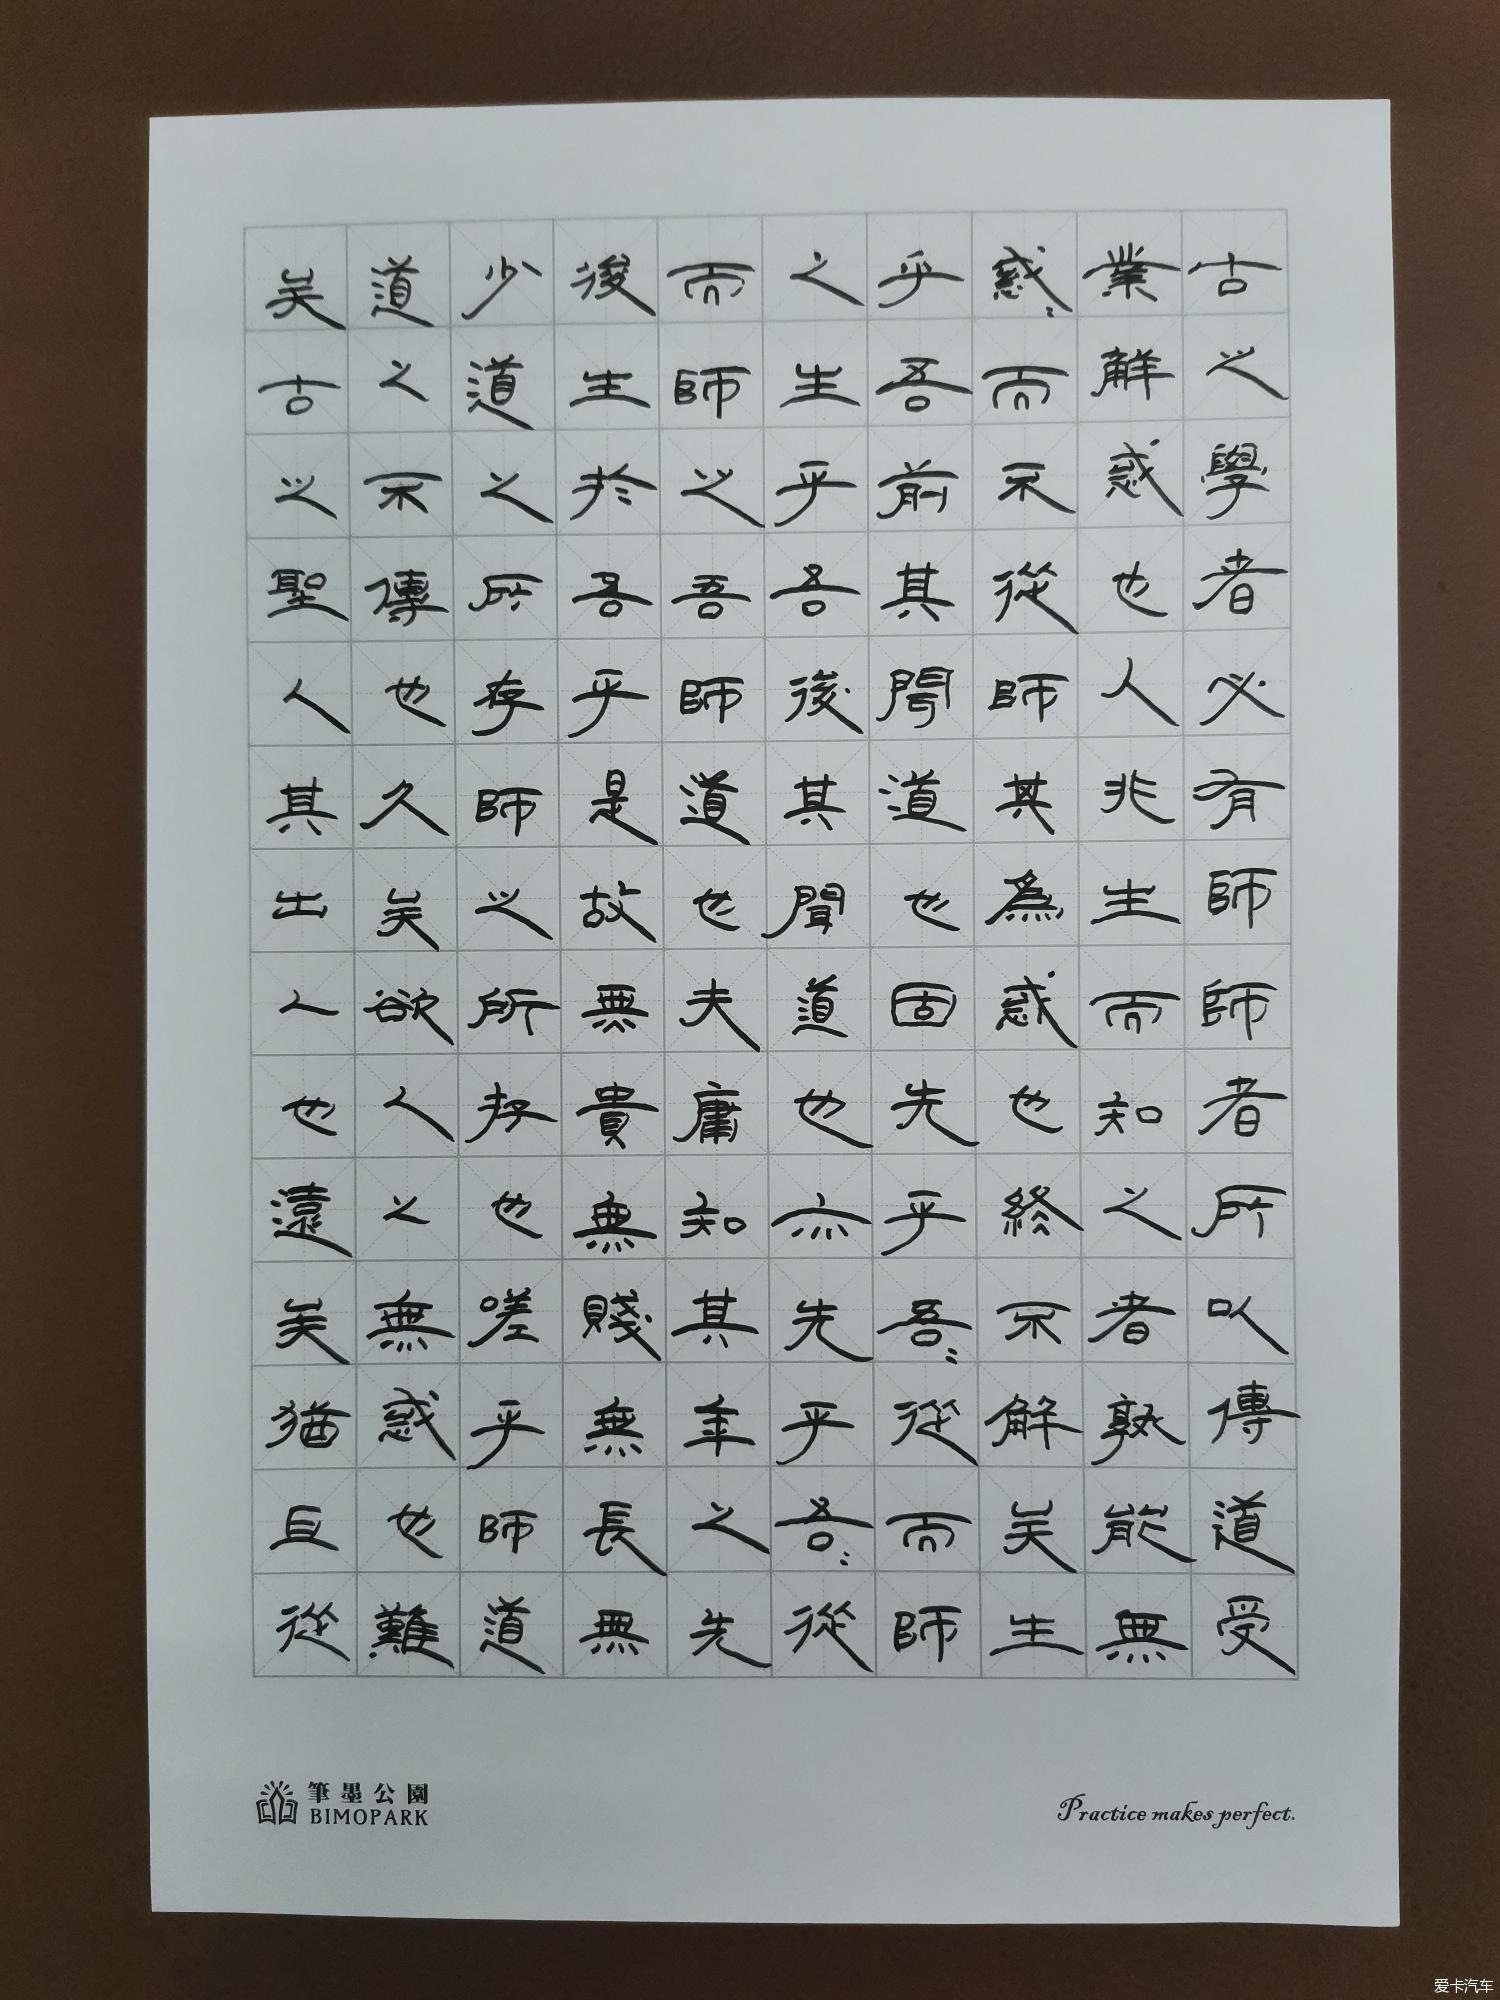 古之學者必有師師者所以傳道受
業解惑也人非生而知之者孰能無
惑〻而不從師其為惑也終不解矣生
乎吾前其聞道也固先乎吾〻從而師
之生乎吾後其聞道也亦先乎吾〻從
而師之吾師道也夫庸知其年之先
後生於吾乎是故無貴無賤無長無
少道之所存師之所存也嗟乎師道
道之不傳也久矣欲人之無惑也難
矣古之聖人其出人也遠矣猶且從
筆墨公園
BIMOPARK
Practice makes perfect.
爱卡汽车